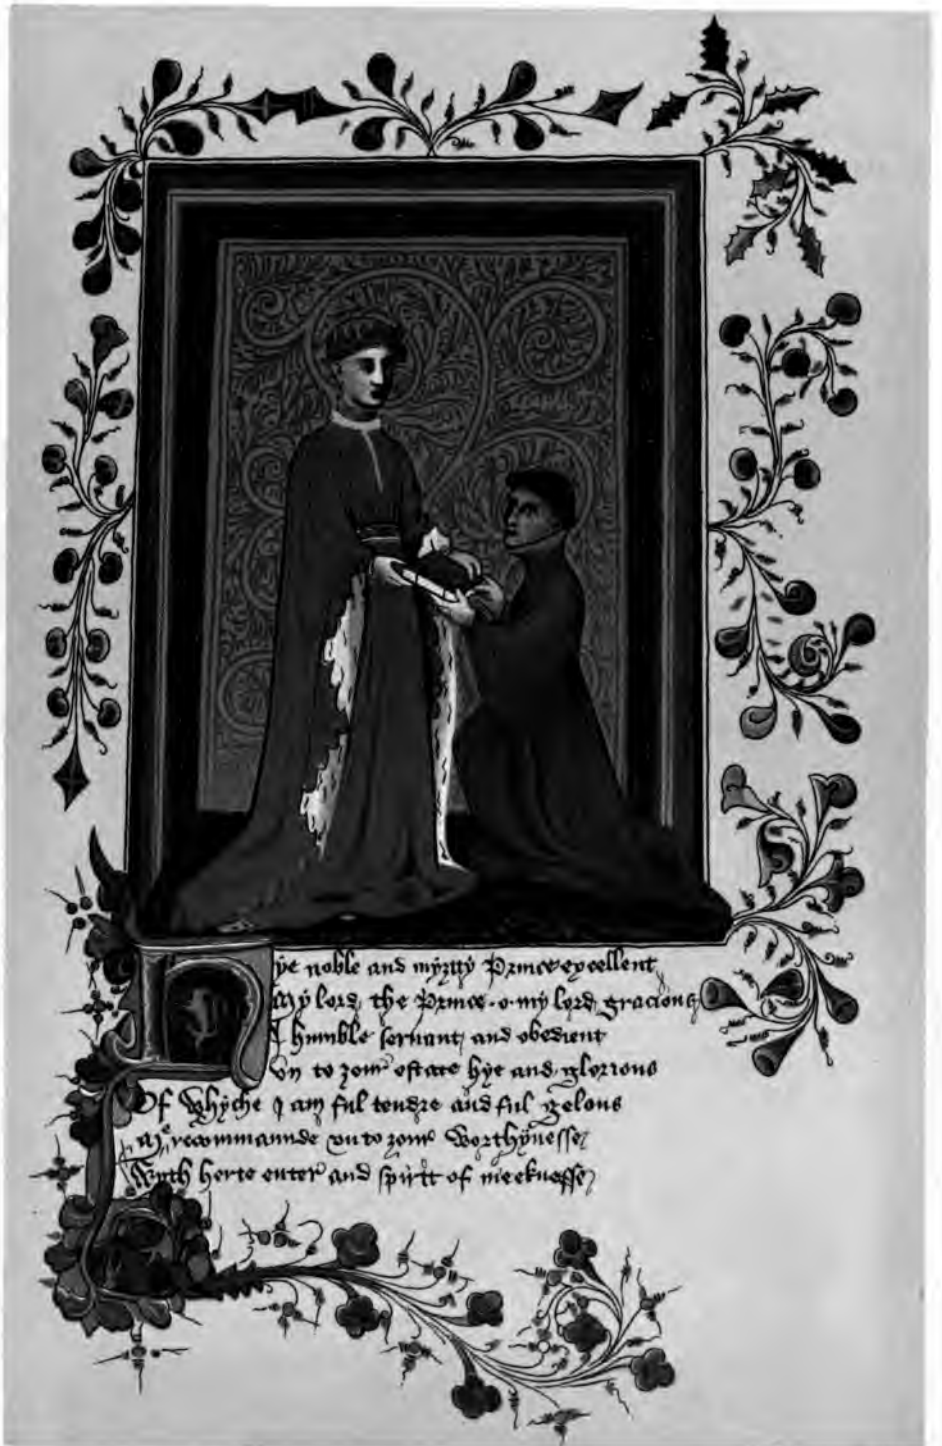 Hye noble and myȝtty Prince excellent
My lord the Prince · o · my lord gracious
I humble seruant and obedient
Vn to ȝour estate hye and glorious
Of whyche I am ful tendre and ful gelous
Me recommaunde vn to ȝour worthynesse
Wyth herte enter and spirit of meeknesse